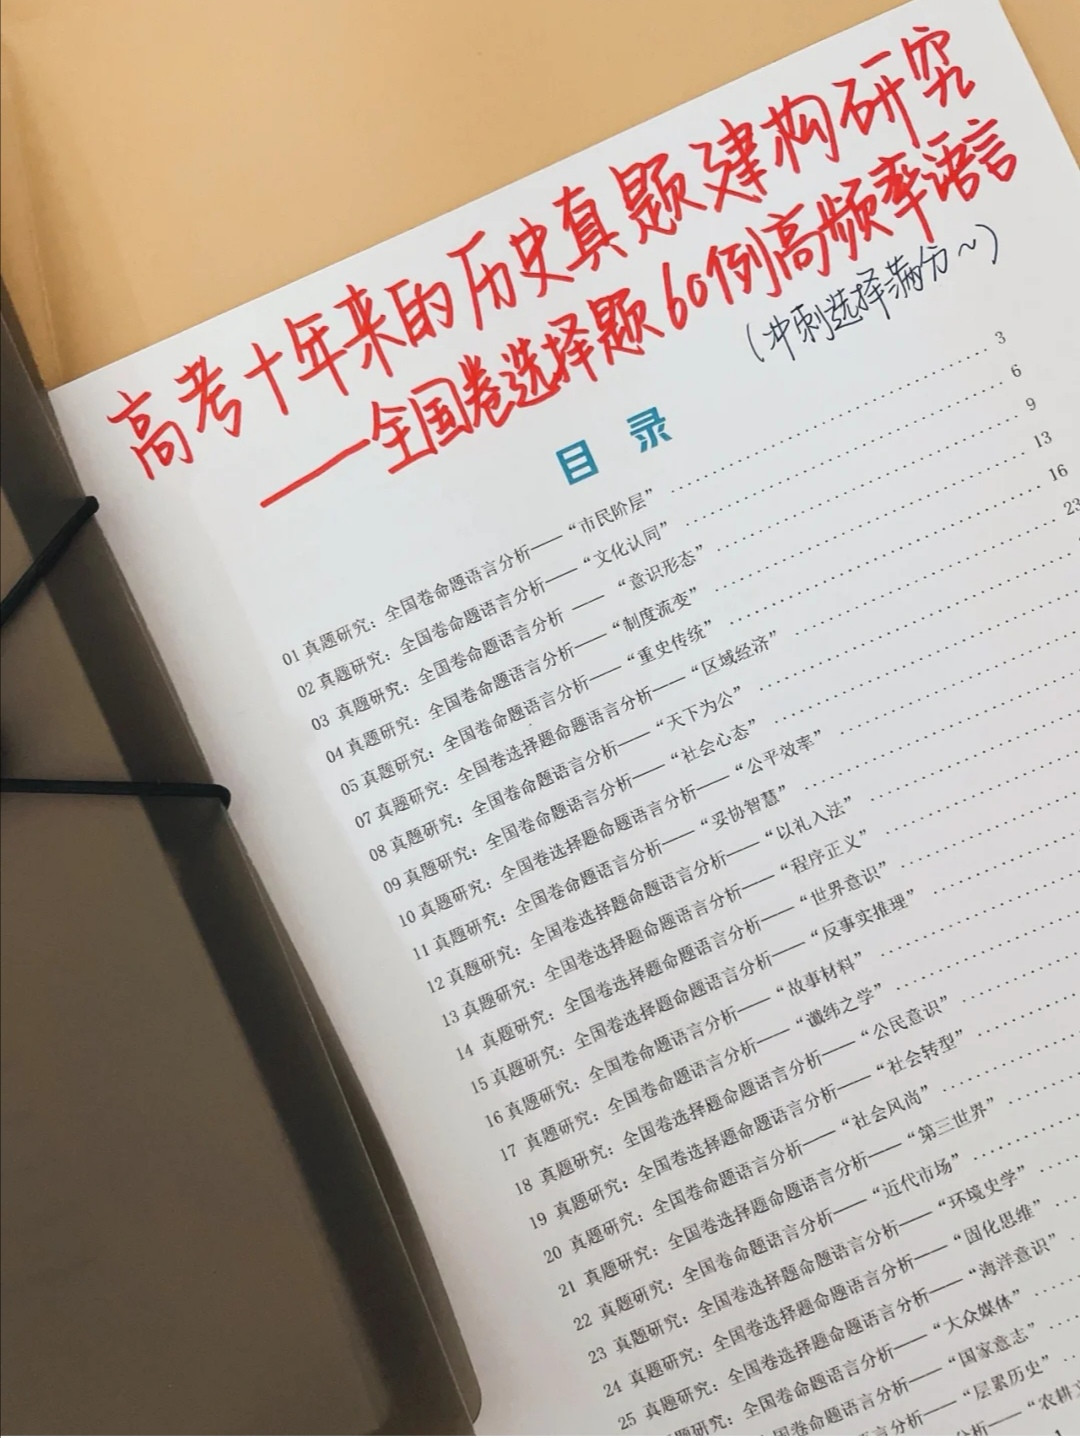 高考十年来的历史真题建构研究
——全国卷选择题60例高频率语言
（冲刺选择满分~）
目 录
01 真题研究：全国卷命题语言分析——“市民阶层” 3
02 真题研究：全国卷命题语言分析——“文化认同” 6
03 真题研究：全国卷命题语言分析 —— “意识形态” 9
04 真题研究：全国卷命题语言分析——“制度流变” 13
05 真题研究：全国卷命题语言分析——“重史传统” 16
07 真题研究：全国卷选择题命题语言分析——“区域经济” 23
08 真题研究：全国卷命题语言分析——“天下为公”
09 真题研究：全国卷命题语言分析——“社会心态”
10 真题研究：全国卷选择题命题语言分析——“公平效率”
11 真题研究：全国卷命题语言分析——“妥协智慧”
12 真题研究：全国卷选择题命题语言分析——“以礼入法”
13 真题研究：全国卷选择题命题语言分析——“程序正义”
14 真题研究：全国卷选择题命题语言分析——“世界意识”
15 真题研究：全国卷选择题命题语言分析——“反事实推理”
16 真题研究：全国卷命题语言分析——“故事材料”
17 真题研究：全国卷命题语言分析——“谶纬之学”
18 真题研究：全国卷选择题命题语言分析——“公民意识”
19 真题研究：全国卷选择题命题语言分析——“社会转型”
20 真题研究：全国卷命题语言分析——“社会风尚”
21 真题研究：全国卷选择题命题语言分析——“第三世界”
22 真题研究：全国卷命题语言分析——“近代市场”
23 真题研究：全国卷选择题命题语言分析——“环境史学”
24 真题研究：全国卷选择题命题语言分析——“固化思维”
25 真题研究：全国卷选择题命题语言分析——“海洋意识”
真题研究：全国卷命题语言分析——“大众媒体”
命题语言分析——“国家意志”
分析——“层累历史”
分析——“农耕